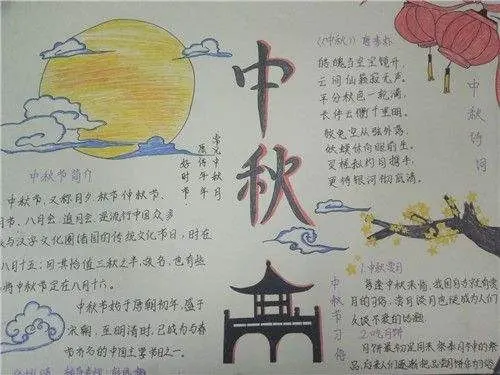 中秋
《中秋》唐李朴
皓魄当空宝镜升，
云间仙籁寂无声。
平分秋色一轮满，
长伴云衢千里明。
狡兔空从弦外落，
妖蟆休向眼前生。
灵槎拟约同携手，
更待银河彻底清。
中秋诗词
中秋节简介
中秋节，又称月夕、秋节、仲秋节、
月节、八月会、追月会、是流行中国众多
族与汉字文化圈诸国的传统文化节日，时在
八月十五；因其恰值三秋之半，故名，也有些
将中秋节定在八月十六。
中秋节始于唐朝初年，盛于
宋朝，至明清时，已成为与春
节齐名的中国主要节日之一。
中秋节习俗
1.中秋赏月
每逢中秋来临，我国自古就有赏
月的习俗，赏月谈月也就成为人们
久谈不衰的话题。
2.吃月饼
月饼最初是用来祭奉月神的祭
品，后来人们逐渐把品尝月饼